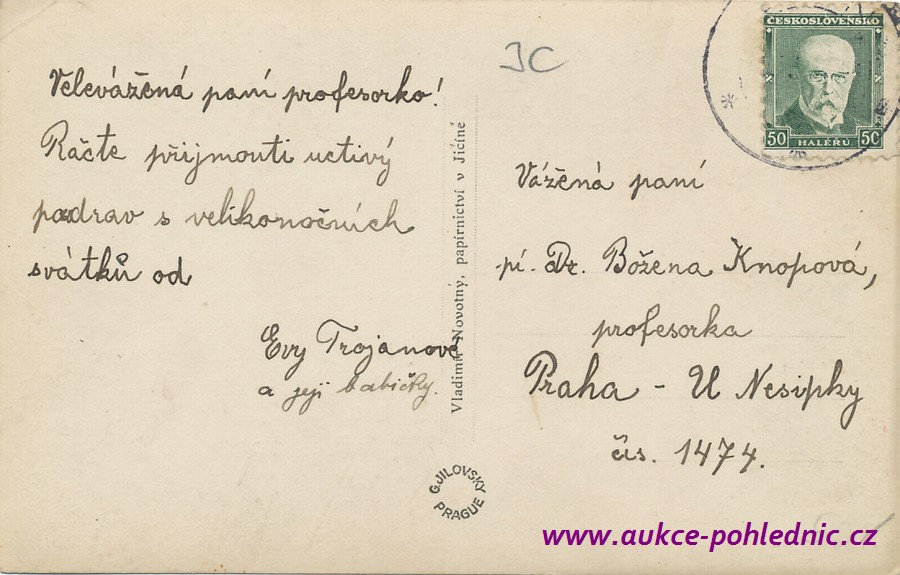 JC
Velevážená paní profesorko!
Račte přijmouti uctivý
pozdrav s velikonočních
svátků od
Evy Trojanové
a její babičky.
Vladimír Novotný, papírnictví v Jičíně
G.JILOVSKY
PRAGUE
ČESKOSLOVENSKO
50 HALÉRŮ 50
Vážená paní
pí. Dr. Božena Knopová,
profesorka
Praha - U Nesipky
čís. 1474.
www.aukce-pohlednic.cz